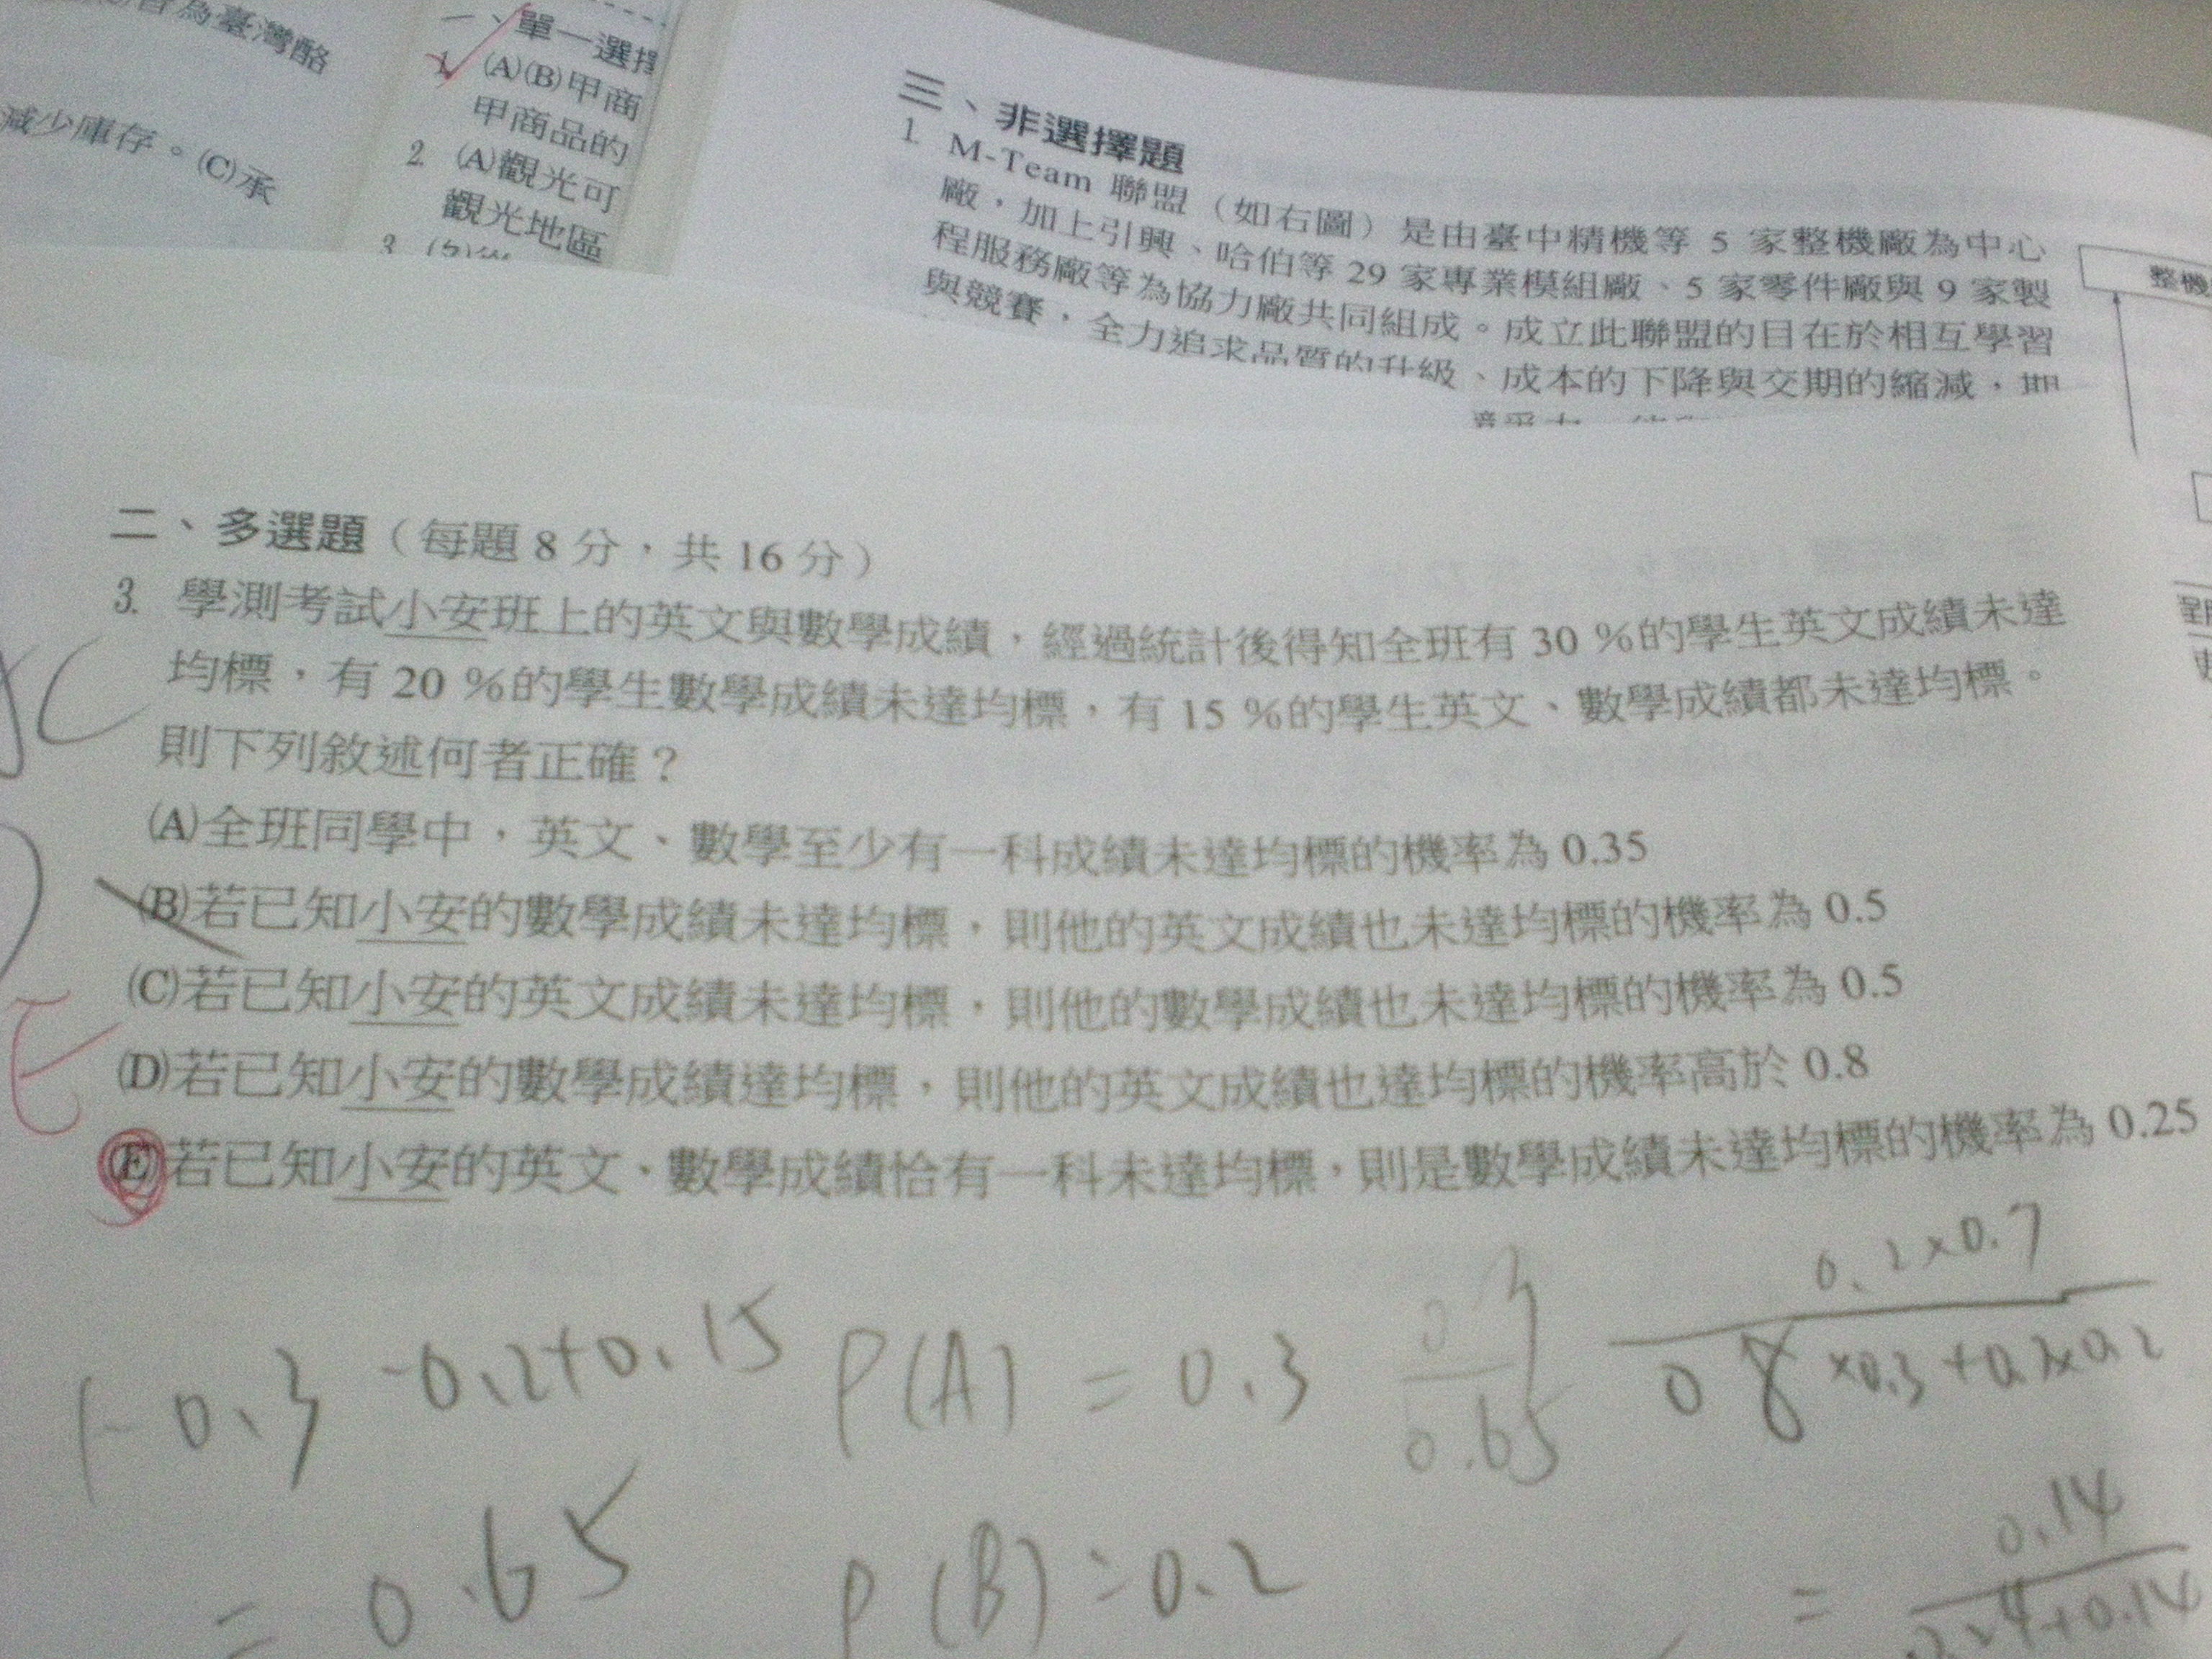 為臺灣酪
減少庫存。(C)承
一、單一選擇
1. (A)(B)甲商
甲商品的
2. (A)觀光可
觀光地區
3.
三、非選擇題
1. M-Team 聯盟（如右圖）是由臺中精機等 5 家整機廠為中心
廠，加上引興、哈伯等 29 家專業模組廠、5 家零件廠與 9 家製
程服務廠等為協力廠共同組成。成立此聯盟的目在於相互學習
與競賽，全力追求品質的升級、成本的下降與交期的縮減，期
整機
二、多選題（每題 8 分，共 16 分）
3. 學測考試小安班上的英文與數學成績，經過統計後得知全班有 30 %的學生英文成績未達
均標，有 20 %的學生數學成績未達均標，有 15 %的學生英文、數學成績都未達均標。
則下列敘述何者正確？
(A)全班同學中，英文、數學至少有一科成績未達均標的機率為 0.35
(B)若已知小安的數學成績未達均標，則他的英文成績也未達均標的機率為 0.5
(C)若已知小安的英文成績未達均標，則他的數學成績也未達均標的機率為 0.5
(D)若已知小安的數學成績達均標，則他的英文成績也達均標的機率高於 0.8
E
(E)若已知小安的英文、數學成績恰有一科未達均標，則是數學成績未達均標的機率為 0.25
1-0.3-0.2+0.15
= 0.65
P(A) = 0.3
P(B) = 0.2
0.65
0.2×0.7
0.8×0.3+0.2×0.2
= 0.14